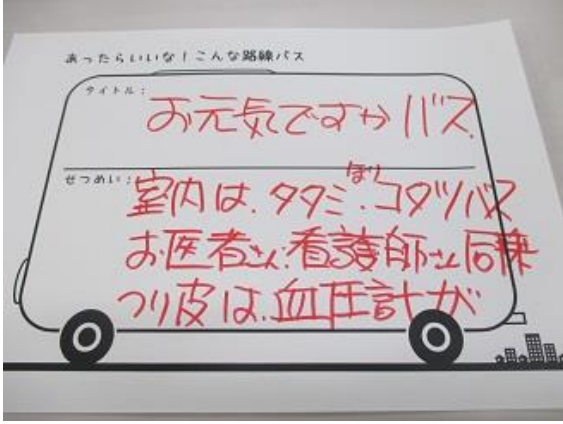 あったらいいな！こんな路線バス
タイトル：
お元気ですかバス
せつめい：
室内は、タタミ、ほりコタツバス
お医者さん、看護師さん同乗
つり皮は、血圧計が